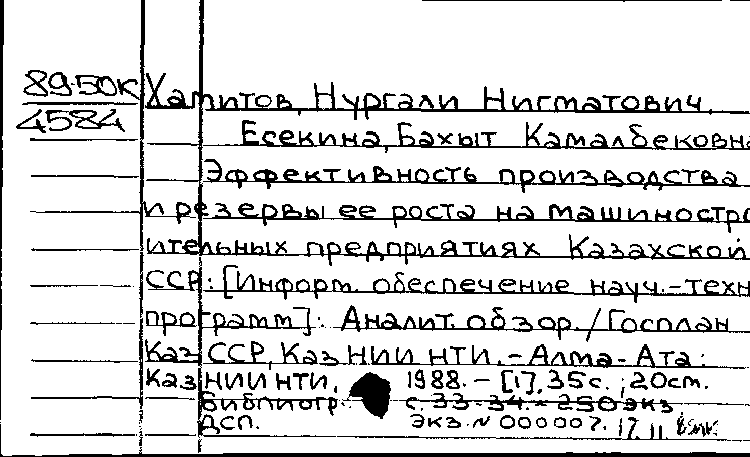 89-50К Хамитов, Нургали Нигматович,
4584 Есекина, Бахыт Камалбековна
Эффективность производства
и резервы ее роста на машиностро
ительных предприятиях Казахской
ССР: [Информ. обеспечение науч.-техн
программ]: Аналит. обзор. / Госплан
Каз ССР, Каз НИИ НТИ. - Алма-Ата:
Каз НИИ НТИ, 1988. - [1], 35 с. ; 20 см.
Библиогр.: с. 33-34. - 250 экз
ДСП. Экз. N 000007. 17.11.